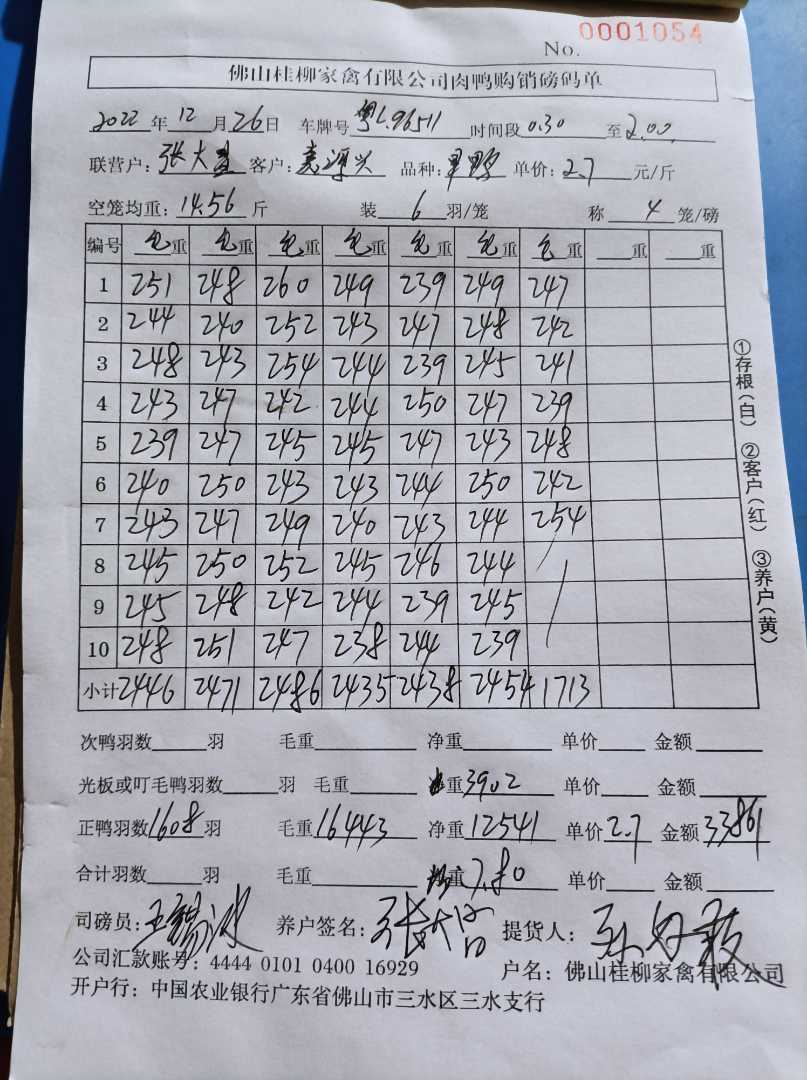 No. 0001054
佛山桂柳家禽有限公司肉鸭购销磅码单
2022年12月26日 车牌号粤L.96511 时间段0.30至2.00.
联营户:张大 客户: 品种: 单价:2.7元/斤
空笼均重:14.56斤 装6羽/笼 称4笼/磅
编号 毛重 毛重 毛重 毛重 毛重 毛重 毛重 重 重
1 251 248 260 249 239 249 247
2 244 240 252 243 247 248 242
3 248 243 254 244 239 245 241
4 243 247 242 244 250 247 239
5 239 247 245 245 247 243 248
6 240 250 243 243 244 250 242
7 243 247 249 240 243 244 254
8 245 250 252 245 246 244
9 245 248 242 244 239 245
10 248 251 247 238 244 239
小计 2446 2471 2486 2435 2438 2454 1713
①存根(白) ②客户(红) ③养户(黄)
次鸭羽数 羽 毛重 净重 单价 金额
光板或叮毛鸭羽数 羽 毛重 重3902 单价 金额
正鸭羽数1608羽 毛重16443 净重12541 单价2.7 金额33861
合计羽数 羽 毛重 重7.80 单价 金额
司磅员:王锡冰 养户签名:张大 提货人:
公司汇款账号:4444 0101 0400 16929 户名:佛山桂柳家禽有限公司
开户行:中国农业银行广东省佛山市三水区三水支行